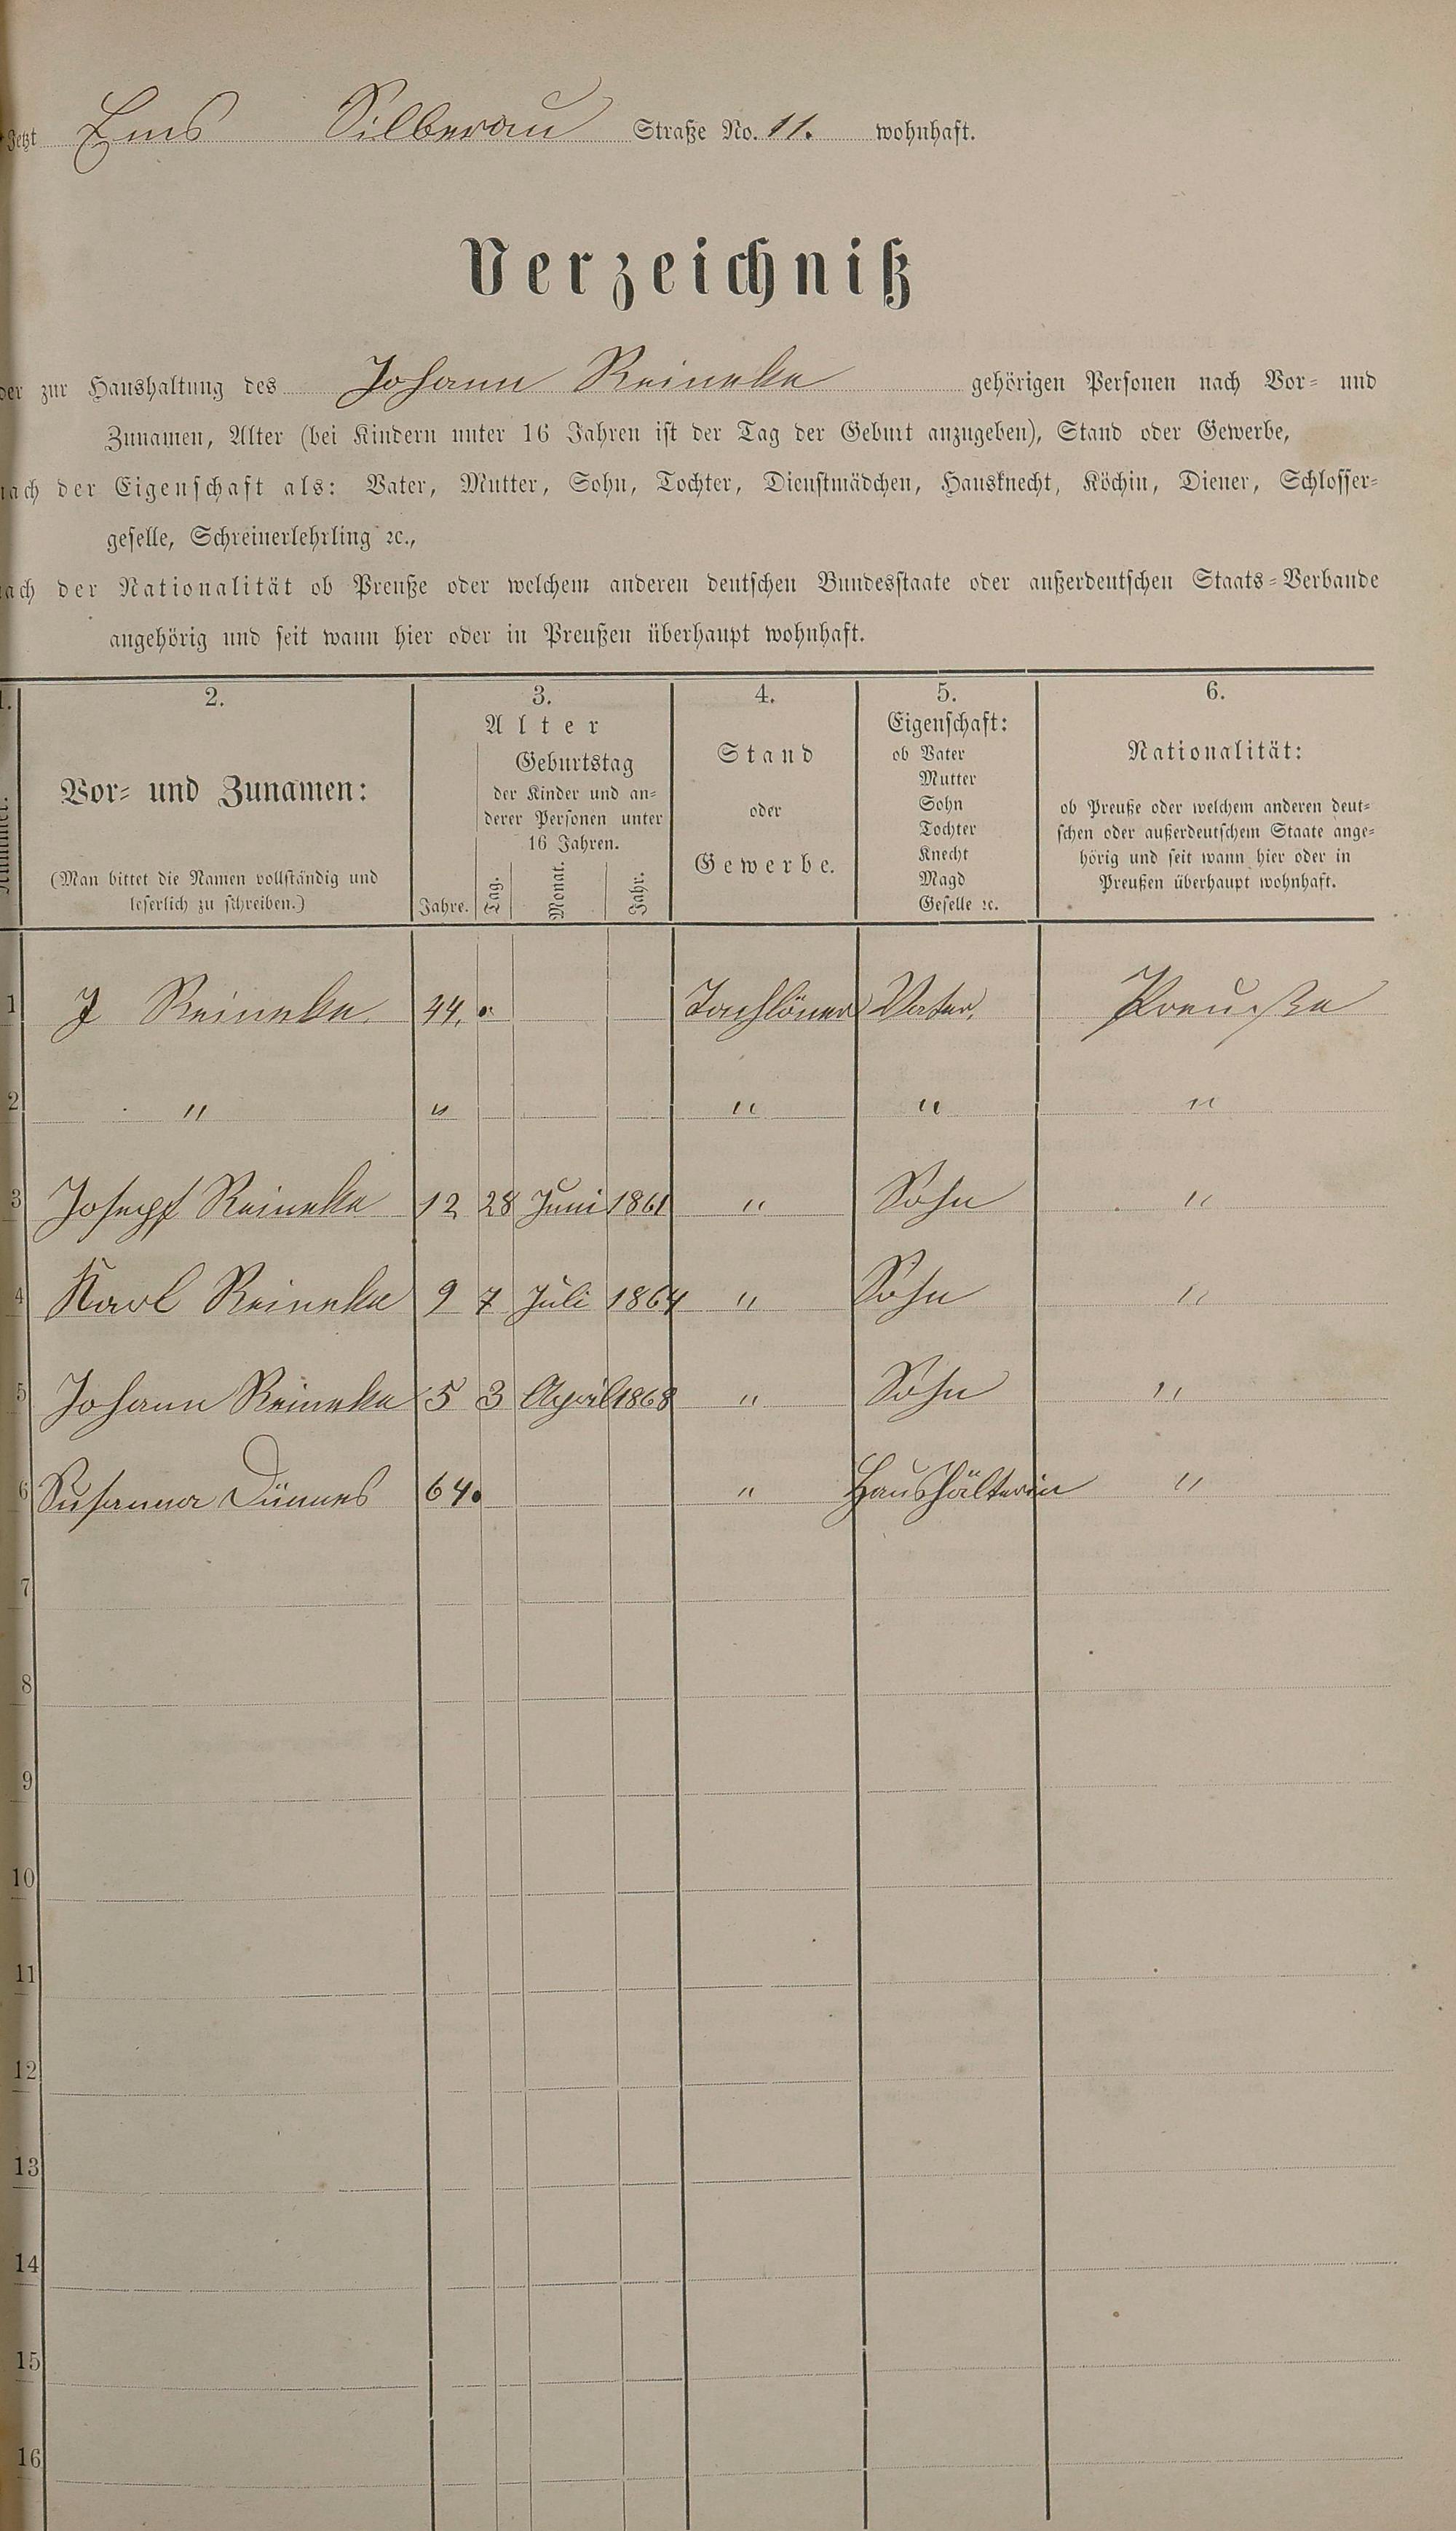 Jetzt Ems Silberau Straße No. 11. wohnhaft.
Verzeichniß
der zur Haushaltung des Johann Reineke gehörigen Personen nach Vor- und
Zunamen, Alter (bei Kindern unter 16 Jahren ist der Tag der Geburt anzugeben), Stand oder Gewerbe,
nach der Eigenschaft als: Vater, Mutter, Sohn, Tochter, Dienstmädchen, Hausknecht, Köchin, Diener, Schlosser-
geselle, Schreinerlehrling ꝛc.,
nach der Nationalität ob Preuße oder welchem anderen deutschen Bundesstaate oder außerdeutschen Staats-Verbande
angehörig und seit wann hier oder in Preußen überhaupt wohnhaft.
1. 2. 3. 4. 5. 6.
Nummer.
Vor- und Zunamen:
(Man bittet die Namen vollständig und
leserlich zu schreiben.)
Alter
Jahre.
Geburtstag
der Kinder und an-
derer Personen unter
16 Jahren.
Tag. Monat. Jahr.
Stand
oder
Gewerbe.
Eigenschaft:
ob Vater
Mutter
Sohn
Tochter
Knecht
Magd
Geselle ꝛc.
Nationalität:
ob Preuße oder welchem anderen deut-
schen oder außerdeutschem Staate ange-
hörig und seit wann hier oder in
Preußen überhaupt wohnhaft.
1 J Reineke 44. Taglöner Vater, Preuße
2 " " " " "
3 Josepf Reineke 12 28 Juni 1861 " Sohn "
4 Karl Reineke 9 7 Juli 1864 " Sohn "
5 Johann Reineke 5 3 April 1868 " Sohn "
6 Susanna Dünnes 64. " Haushälterin "
7
8
9
10
11
12
13
14
15
16